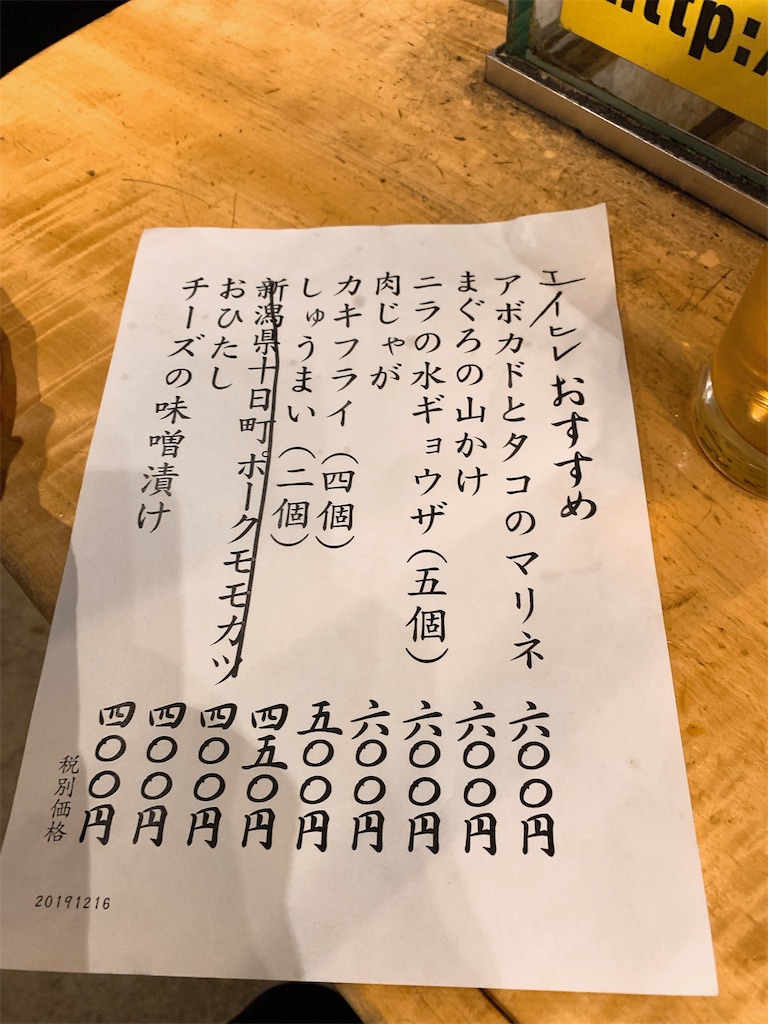 http:/
エイヒレ おすすめ
アボカドとタコのマリネ 六〇〇円
まぐろの山かけ 六〇〇円
ニラの水ギョウザ（五個） 六〇〇円
肉じゃが 六〇〇円
カキフライ（四個） 五〇〇円
しゅうまい（二個） 四五〇円
新潟県十日町ポークモモカツ 四〇〇円
おひたし 四〇〇円
チーズの味噌漬け 四〇〇円
税別価格
20191216